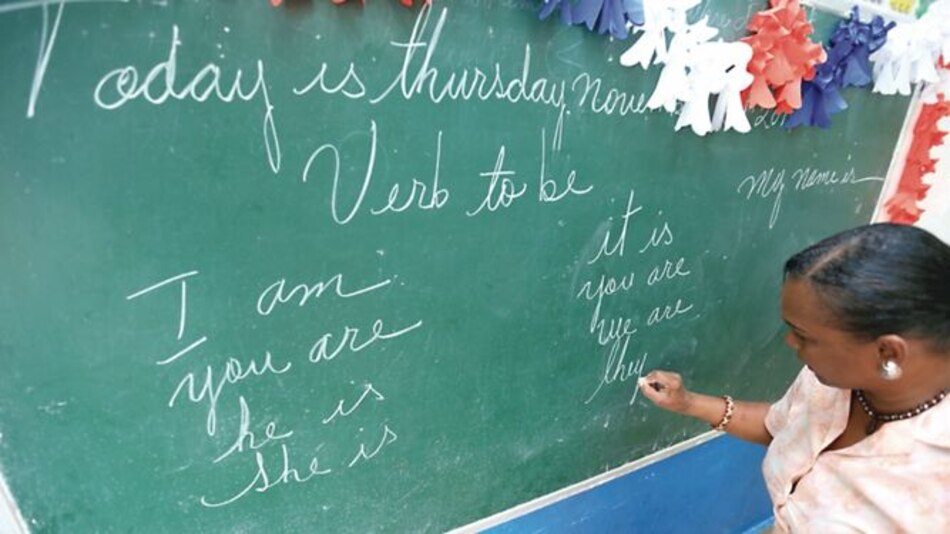 Today is thursday, November
Verb to be
My name is
I am
you are
he is
She is
it is
you are
we are
they